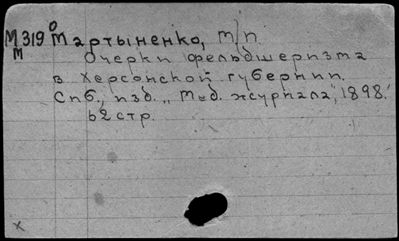 М 319 О Мартыненко, М/П
М Очерки фельдшеризма
в Херсонской губернии.
Спб., изд. „Мед. журнала", 1898.
62 стр.
x